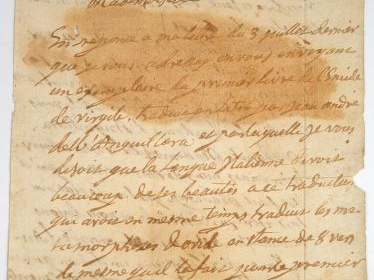 En reponce a ma lettre du 3 juillet dernier
que je vous adressay en vous envoyant
un exemplaire du premier livre de l'Eneide
de virgile, traduit en par jean andre
dell'Anguillera et par laquelle je vous
disoit que la langue Italienne devoit
beaucoup de ses beautés a ce traducteur
qui avoit en mesme temps traduit les me
tamorphoses d'ovide en stance de 8 vers
de mesme qu'il la fait pour le premier